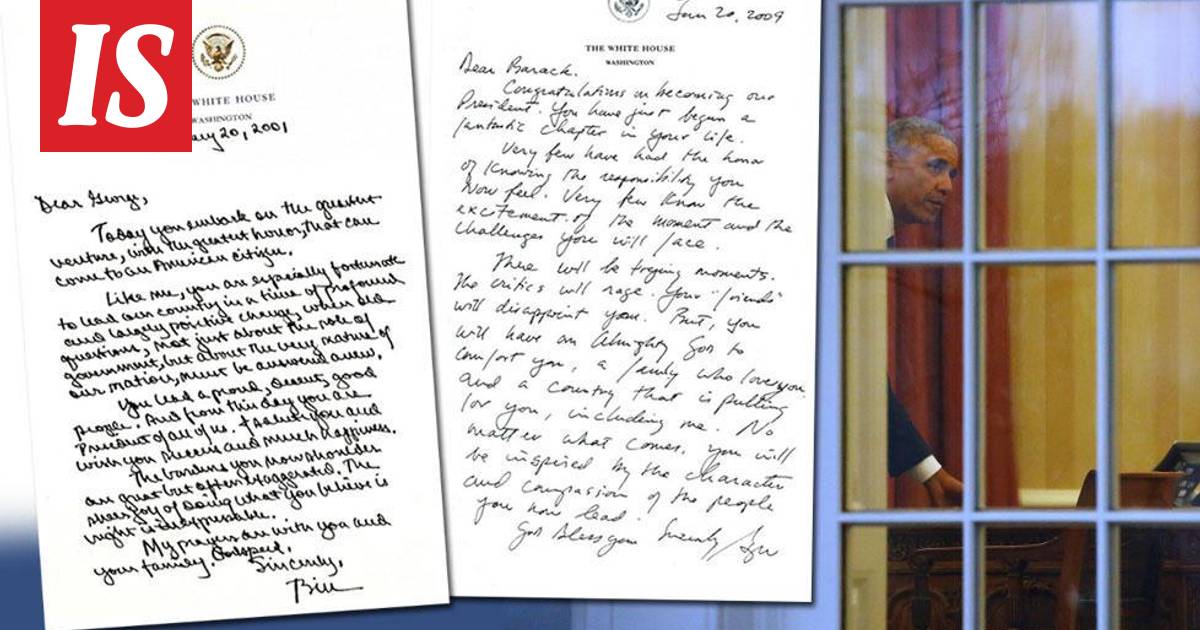 IS
WHITE HOUSE
WASHINGTON
20, 2001
Dear George,
Today you embark on the greatest
venture, with the greatest honor, that can
come to an American citizen.
Like me, you are especially fortunate
to lead our country in a time of profound
and largely positive change, when old
questions, not just about the role of
government, but about the very nature of
our nation, must be answered anew.
You lead a proud, decent, good
people. And from this day you are
President of all of us. I salute you and
wish you success and much happiness.
The burdens you now shoulder
are great but often exaggerated. The
sheer joy of doing what you believe is
right is inexpressible.
My prayers are with you and
your family. Godspeed.
Sincerely,
Bill
Jan 20, 2009
THE WHITE HOUSE
WASHINGTON
Dear Barack,
Congratulations on becoming our
President. You have just begun a
fantastic chapter in your life.
Very few have had the honor
of knowing the responsibility you
now feel. Very few know the
excitement of the moment and the
challenges you will face.
There will be trying moments.
The critics will rage. Your "friends"
will disappoint you. But, you
will have an Almighty God to
comfort you, a family who loves you,
and a country that is pulling
for you, including me. No
matter what comes, you will
be inspired by the character
and compassion of the people
you now lead.
God bless you. Sincerely,